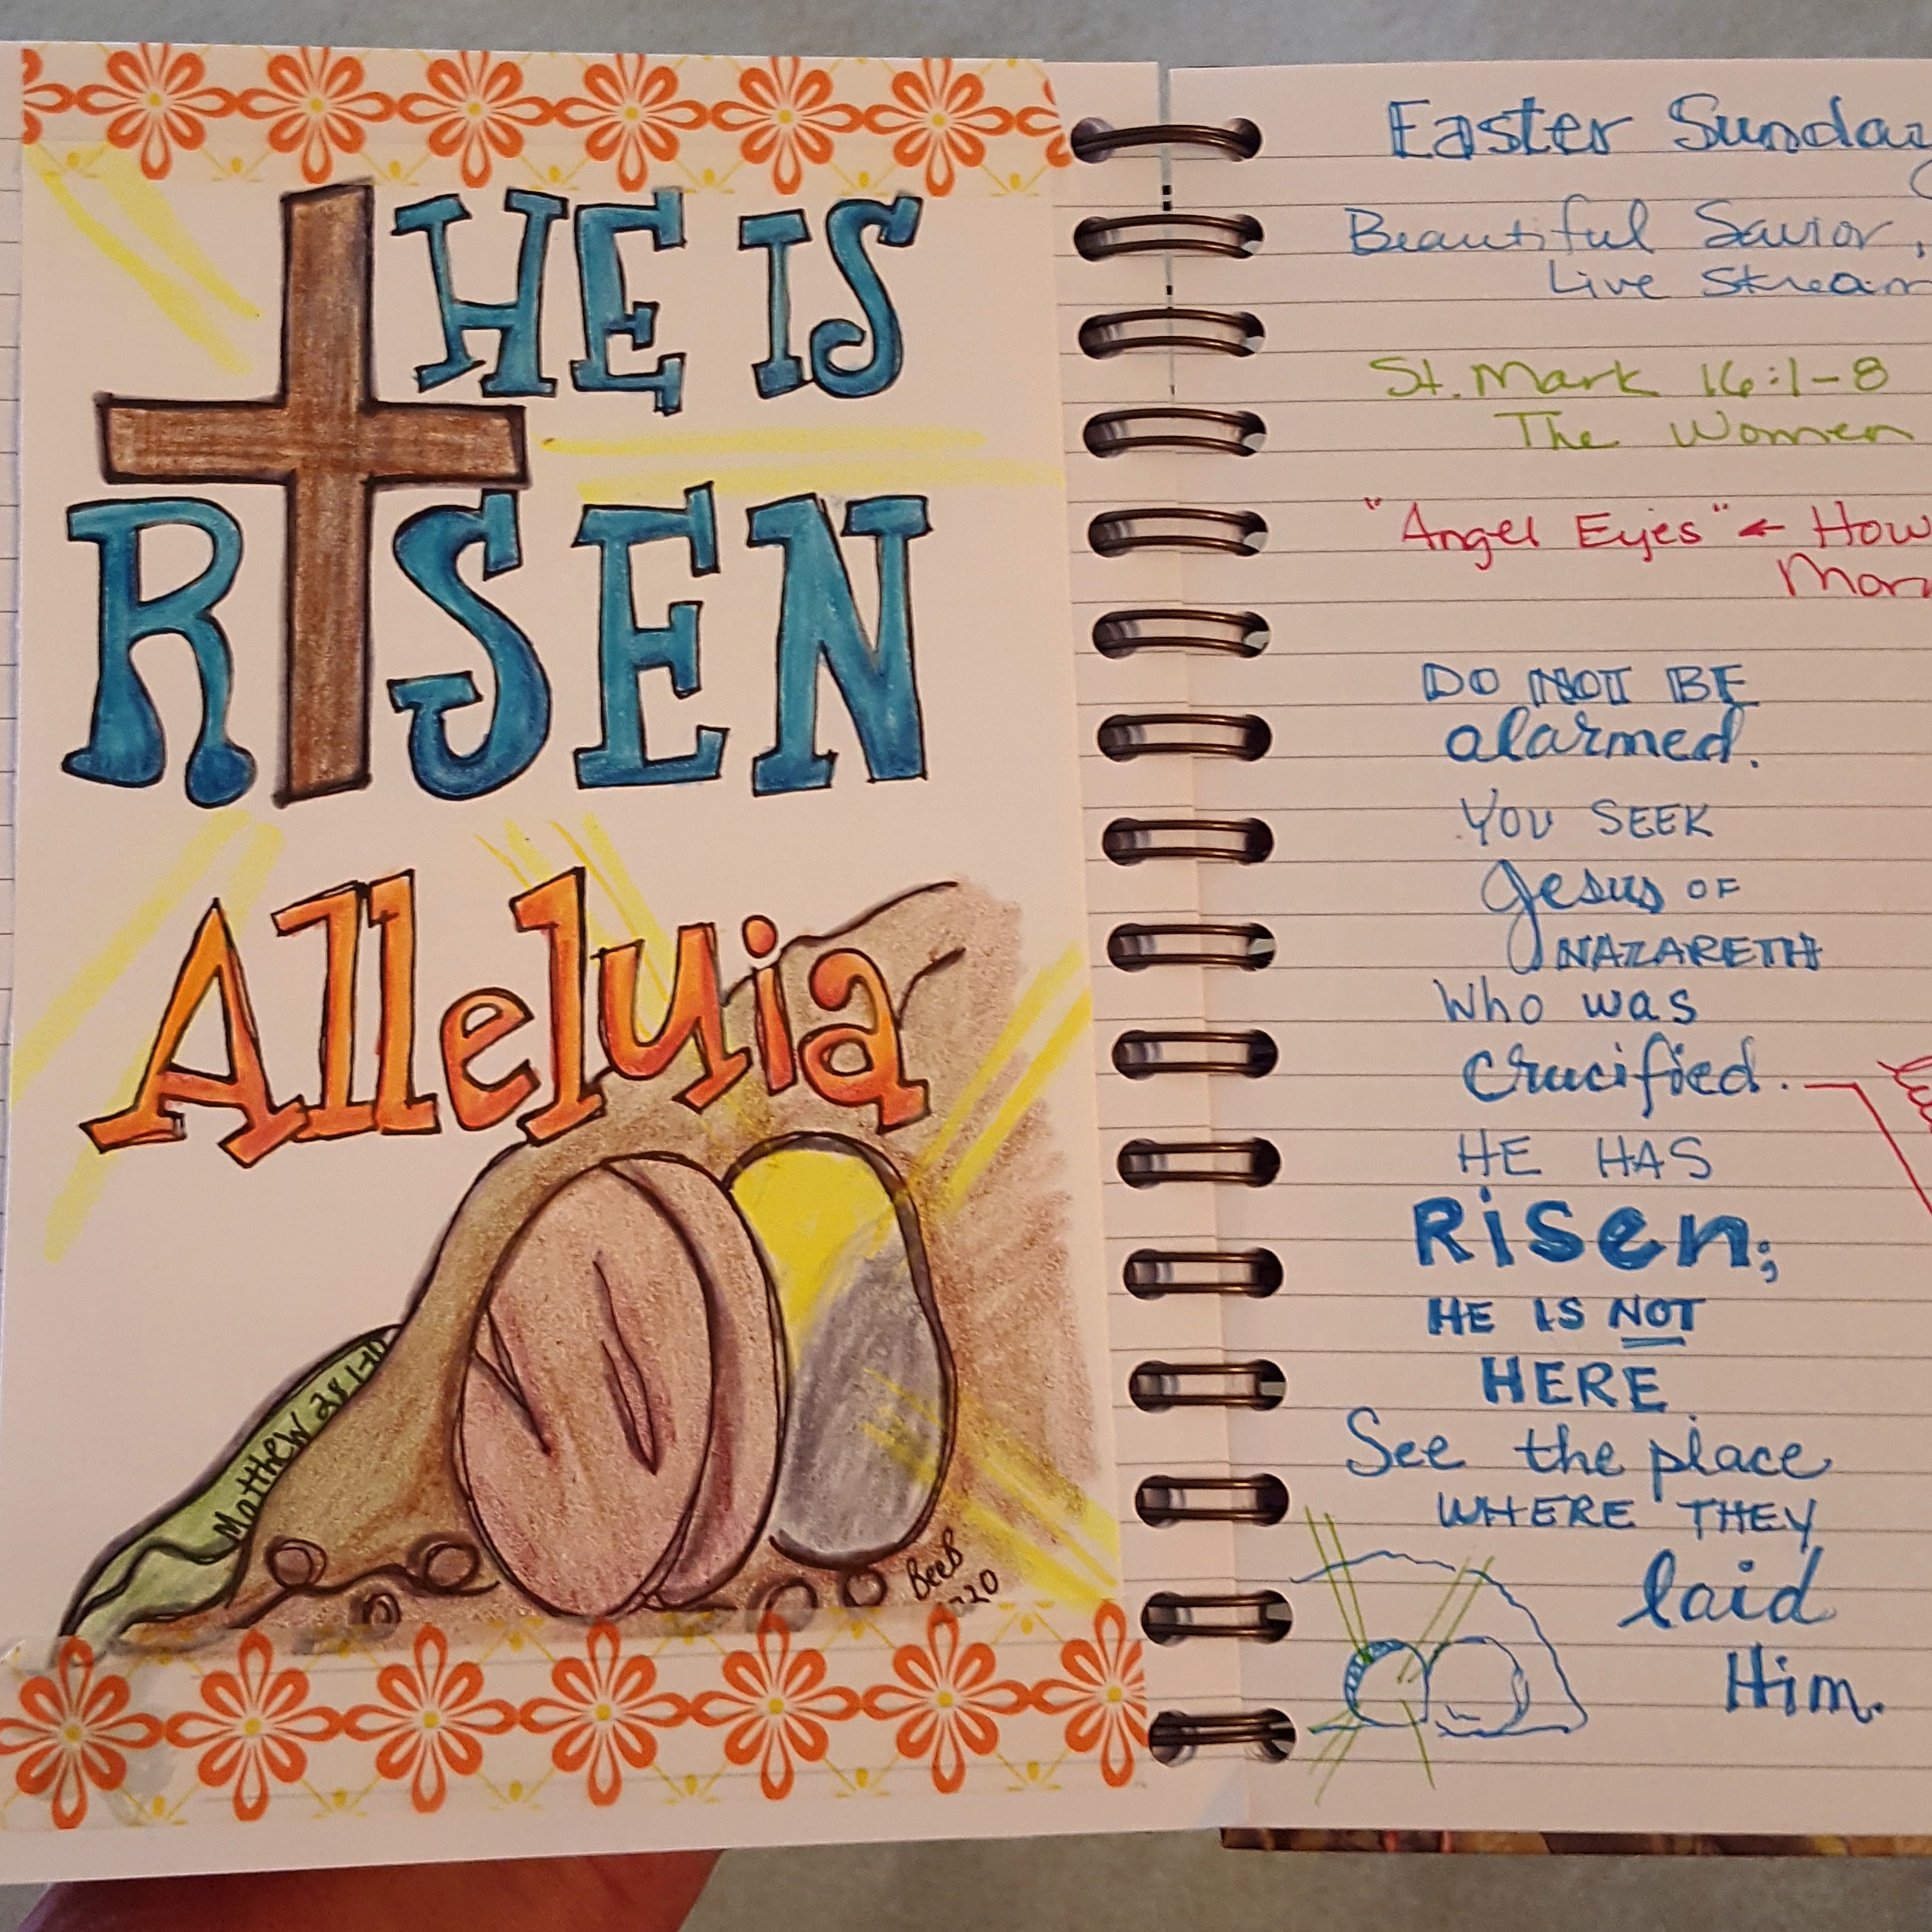 HE IS
RISEN
Alleluia
Matthew 28 1-10
BeeB
Easter Sunday
Beautiful Savior,
Live Stream
St. Mark 16:1-8
The Women
"Angel Eyes" ← How
DO NOT BE
alarmed.
YOU SEEK
Jesus OF
NAZARETH
Who was
crucified.
HE HAS
Risen;
HE IS NOT
HERE.
See the place
WHERE THEY
laid
Him.